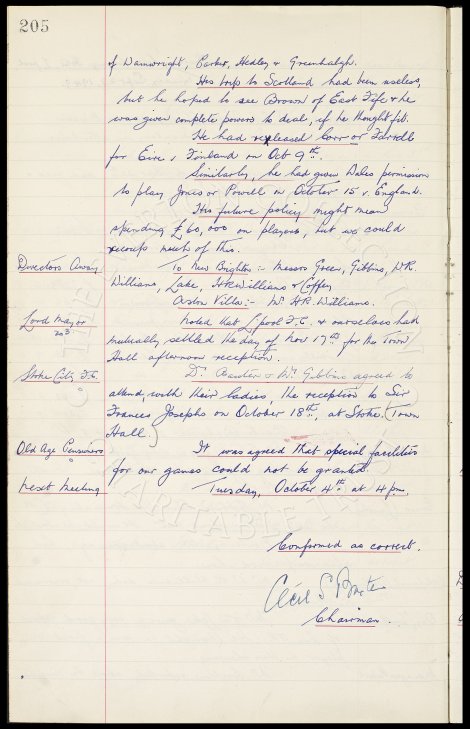 205
of Wainwright, Corker, Hedley & Greenhalgh.
His trip to Scotland had been useless,
but he hoped to see Brown of East Fife & he
was given complete powers to deal, if he thought fit.
He had released Corr or Farrell
for Eire v Finland on Oct 9th.
Similarly, he had given Wales permission
to play Jones or Powell on October 15 v. England.
His future policy might mean
spending £60,000 on players, but we could
recoup much of this.
Directors Away
To New Brighton :- Messrs Green, Gibbins, W.R.
Williams, Lake, H.R. Williams & Coffey
Aston Villa :- Mr H.R. Williams.
Lord Mayor
Noted that L'pool F.C. & ourselves had
mutually settled the day of Nov 17th for the Town
Hall afternoon reception.
Stoke City F.C.
Dr. Baxter & Mr Gibbins agreed to
attend with their ladies, the reception to Sir
Francis Josephs on October 18th, at Stoke. (Town
Hall.)
Old Age Pensioners
It was agreed that special facilities
for our games could not be granted.
Next Meeting
Tuesday, October 4th at 4 pm.
Confirmed as correct.
Cecil S Baxter
Chairman.